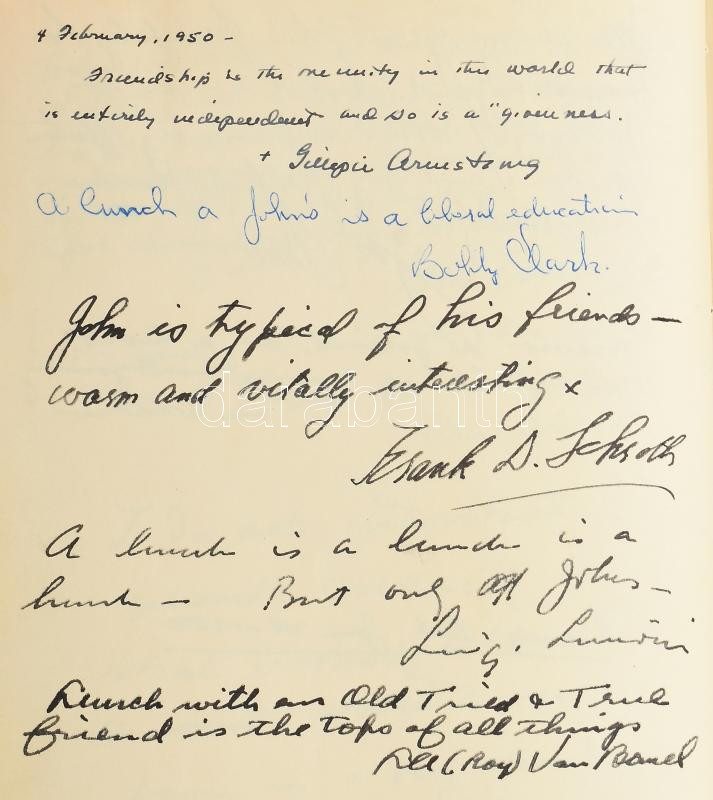 4 February, 1950 -
Friendship is the one unity in this world that
is entirely independent and so is a "givenness.
+ Armstrong
A lunch a John's is a liberal education
Bobby Clark.
John is typical of his friends —
warm and vitally interesting x
Frank D. Schroth
A lunch is a lunch is a
lunch — But only at Johns —
Luigi
Lunch with an Old Tried & True
friend is the tops of all things
(Roy) Van
darabanth